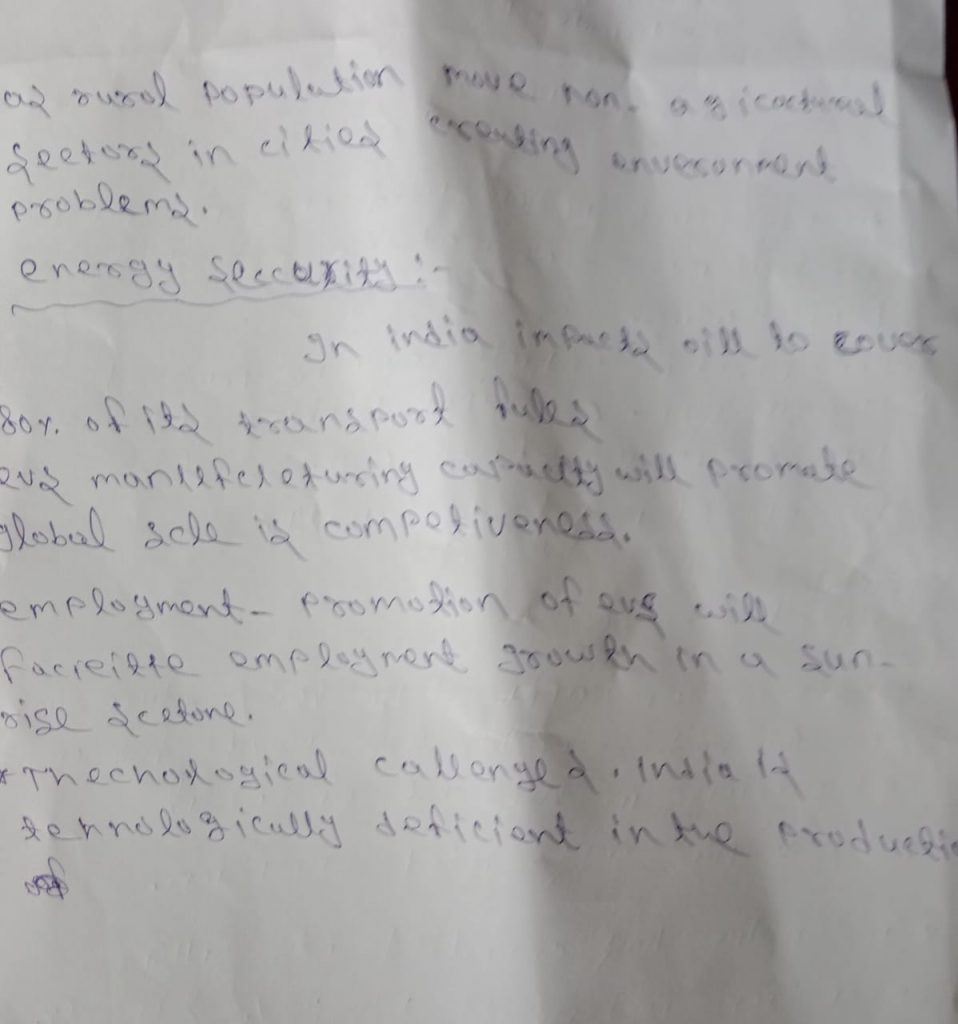 as rural population move non- agicactural
sectors in cities creating onversonment
problems.
energy seccurity :-
In india impacts oill to cover
80%. of its transport fules
evs manufcleturing capacity will promate
global scle is compoliveness.
employment - promotion of evs will
facreilte employment growth in a sun-
rise scetore.
* Thechological callenges. India is
tehnologically deficient in the productio